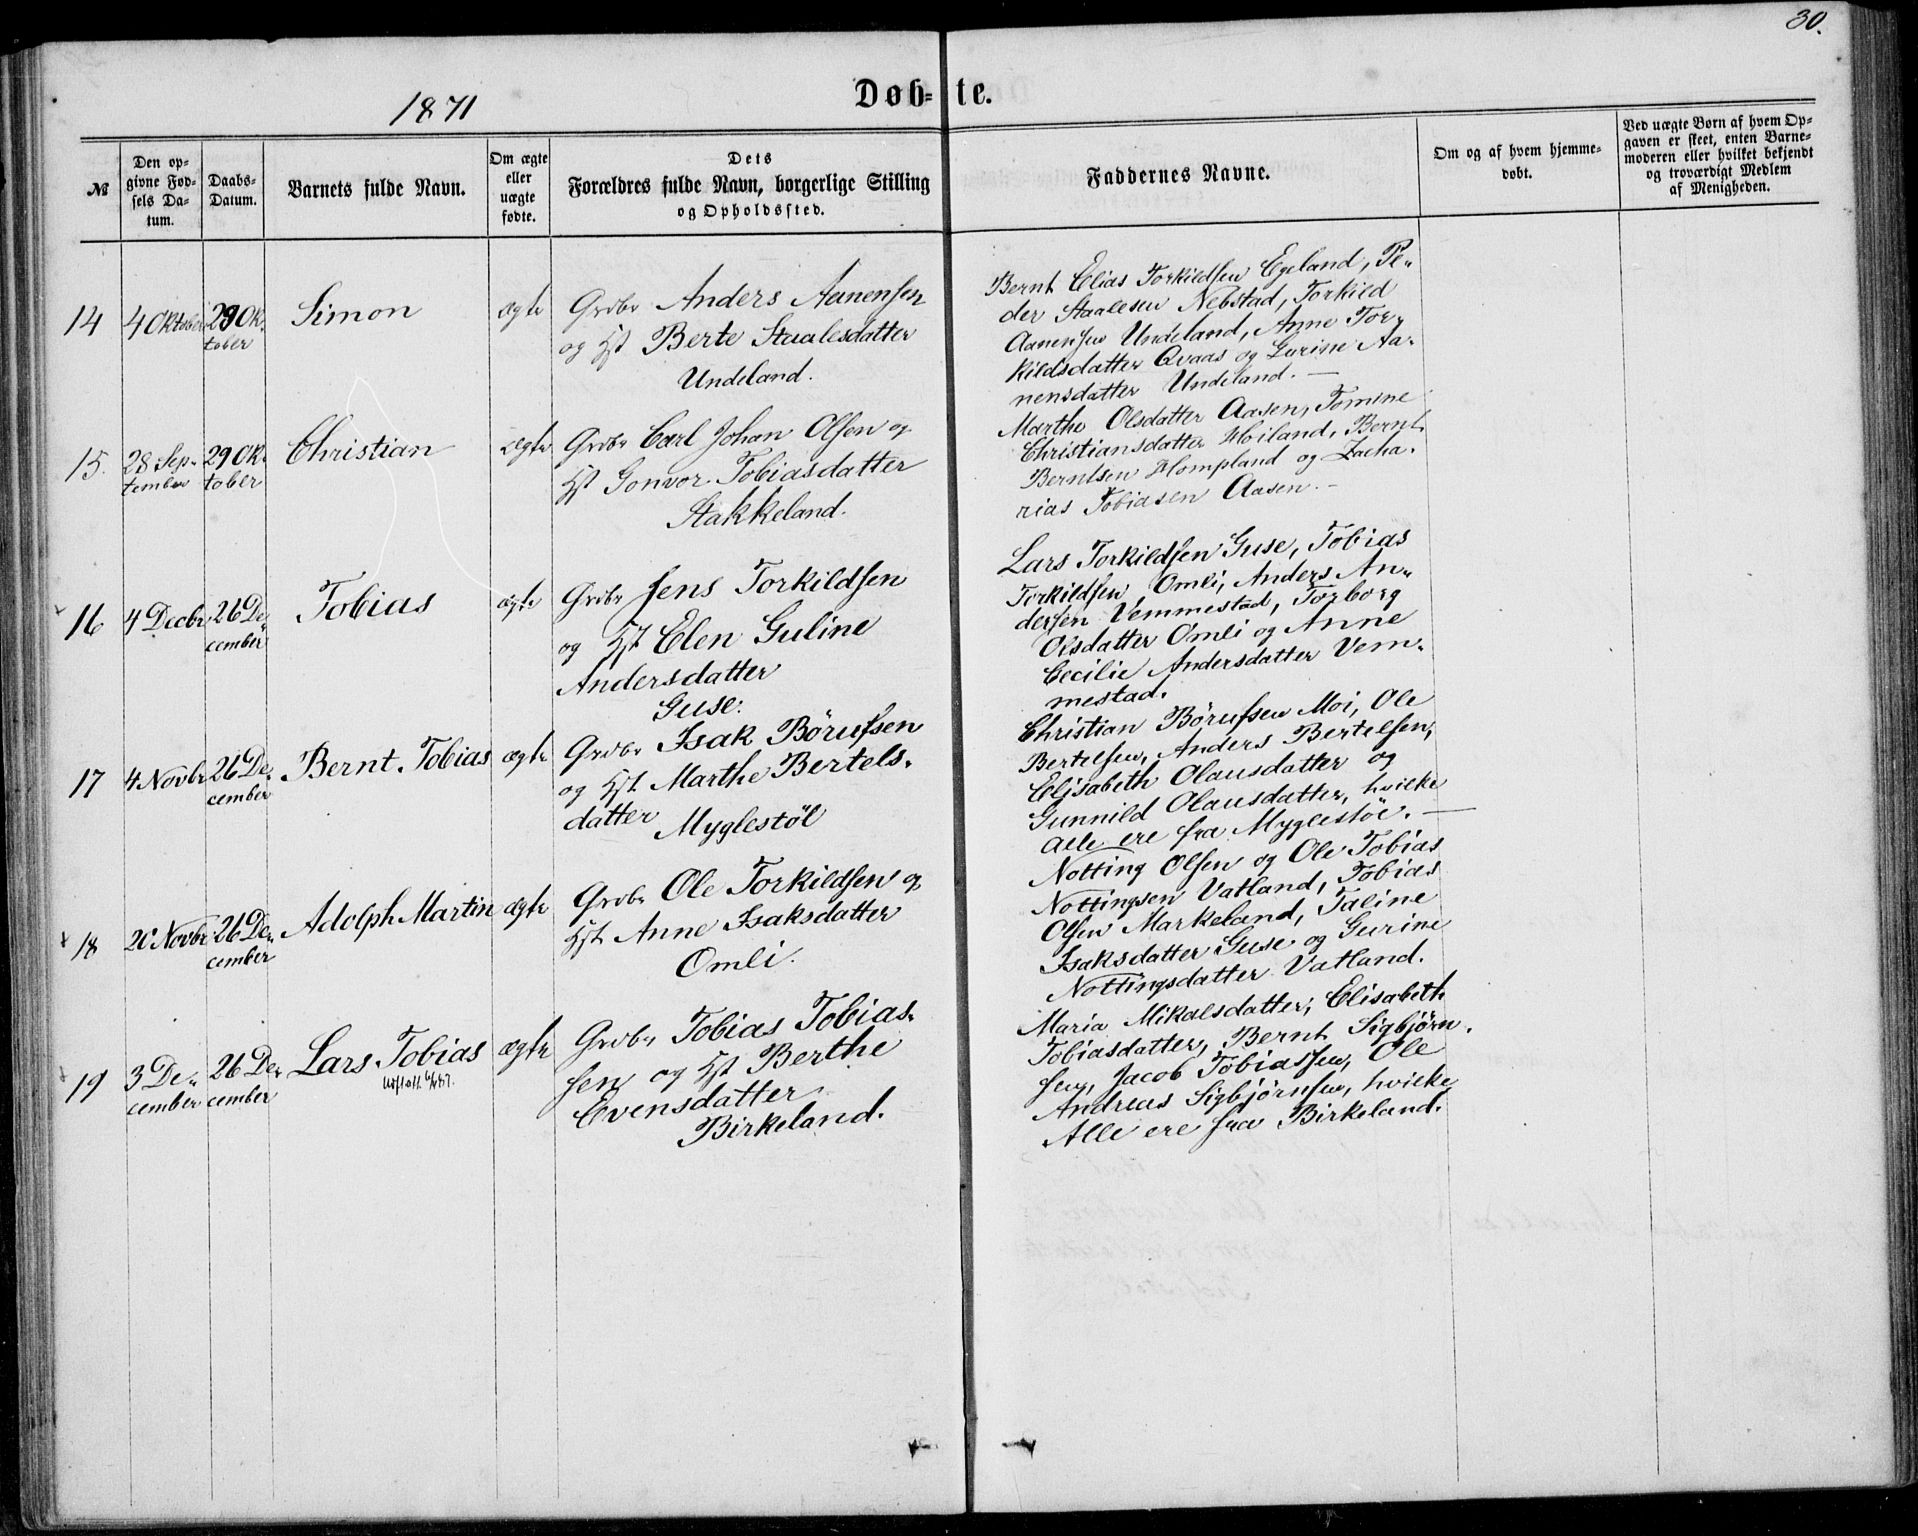 30.
1871
Døb= te.
№
Den op=
givne Fød=
sels Da=
tum.
Daabs=
Datum.
Barnets fulde Navn.
Om ægte
eller
uægte
fødte.
Dets
Forældres fulde Navn, borgerlige Stilling
og Opholdssted.
Faddernes Navne.
Om og af hvem hjemme=
døbt.
Ved uægte Børn af hvem Op=
gaven er skeet, enten Barne=
moderen eller hvilket bekjendt
og troværdigt Medlem
af Menigheden.
14
4 Oktober
29 Ok.
tober
Simon
ægte
Grdbr Anders Aanensen
og Hst Berte Staalesdatter
Undeland.
Bernt Elias Torkildsen Egeland, Pe„
der Staalesen Nebstad, Torkild
Aanensen Undeland, Anne Tor„
kildsdatter Qvaas og Gurine Aa„
nensdatter Undeland. —
15.
28 Sep„
tember
29 Ok„
tober
Christian
ægte
Grdbr Carl Johan Olsen og
Hst Gonvor Tobiasdatter
Stakkeland.
Marthe Olsdatter Aasen, Tomine
Christiansdatter Høiland, Bernt
Berntsen Hompland og Zacha„
rias Tobiasen Aasen. —
16
4 Decbr
26 De„
cember
Tobias
ægte
Grdbr Jens Torkildsen
og Hst Elen Guline
Andersdatter
Guse.
Lars Torkildsen Guse, Tobias
Torkildsen Omli, Anders An„
dersen Vemmestad, Torborg
Olsdatter Omli og Anne
Cecilie Andersdatter Vem„
mestad.
17
4 Novbr
26 De„
cember
Bernt Tobias
ægte
Grdbr Isak Börufsen
og Hst Marthe Bertels„
datter Myglestöl
Christian Börufsen Moi, Ole
Bertelsen, Anders Bertelsen,
Elisabeth Olausdatter og
Gunnild Olausdatter, hvilke
alle ere fra Myglestöl. —
18
20 Novbr
26 De„
cember
Adolph Martin
ægte
Grdbr Ole Torkildsen og
Hst Anne Isaksdatter
Omli.
Notting Olsen og Ole Tobias
Nottingsen Vatland, Tobias
Olsen Markeland, Taline
Isaksdatter Guse og Gurine
Nottingsdatter Vatland.
19
3 De„
cember
26 De„
cember
Lars Tobias
ægte
Grdbr Tobias Tobias„
sen og Hst Berthe
Evensdatter
Birkeland.
Maria Mikalsdatter, Elisabeth
Tobiasdatter, Bernt Sigbjørn„
sen, Jacob Tobiassen, Ole
Andreas Sigbjørnsen, hvilke
Alle ere fra Birkeland.